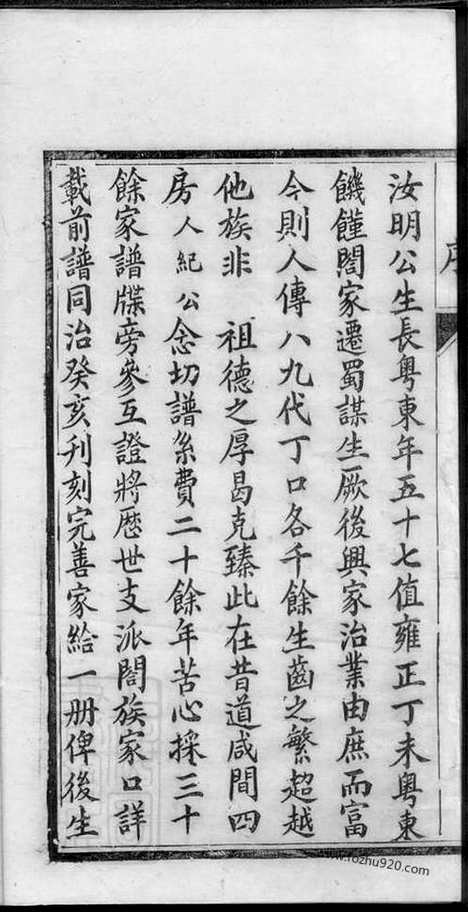 序
汝明公生長粵東年五十七值雍正丁未粵東
饑饉閤家遷蜀謀生厥後興家治業由庶而富
今則人傳八九代丁口各千餘生齒之繁超越
他族非 祖德之厚曷克臻此在昔道咸間四
房人紀公念切譜系費二十餘年苦心採三十
餘家譜牒旁參互證將歷世支派閤族家口詳
載前譜同治癸亥刋刻完善家給一册俾後生
www.rozhu920.com